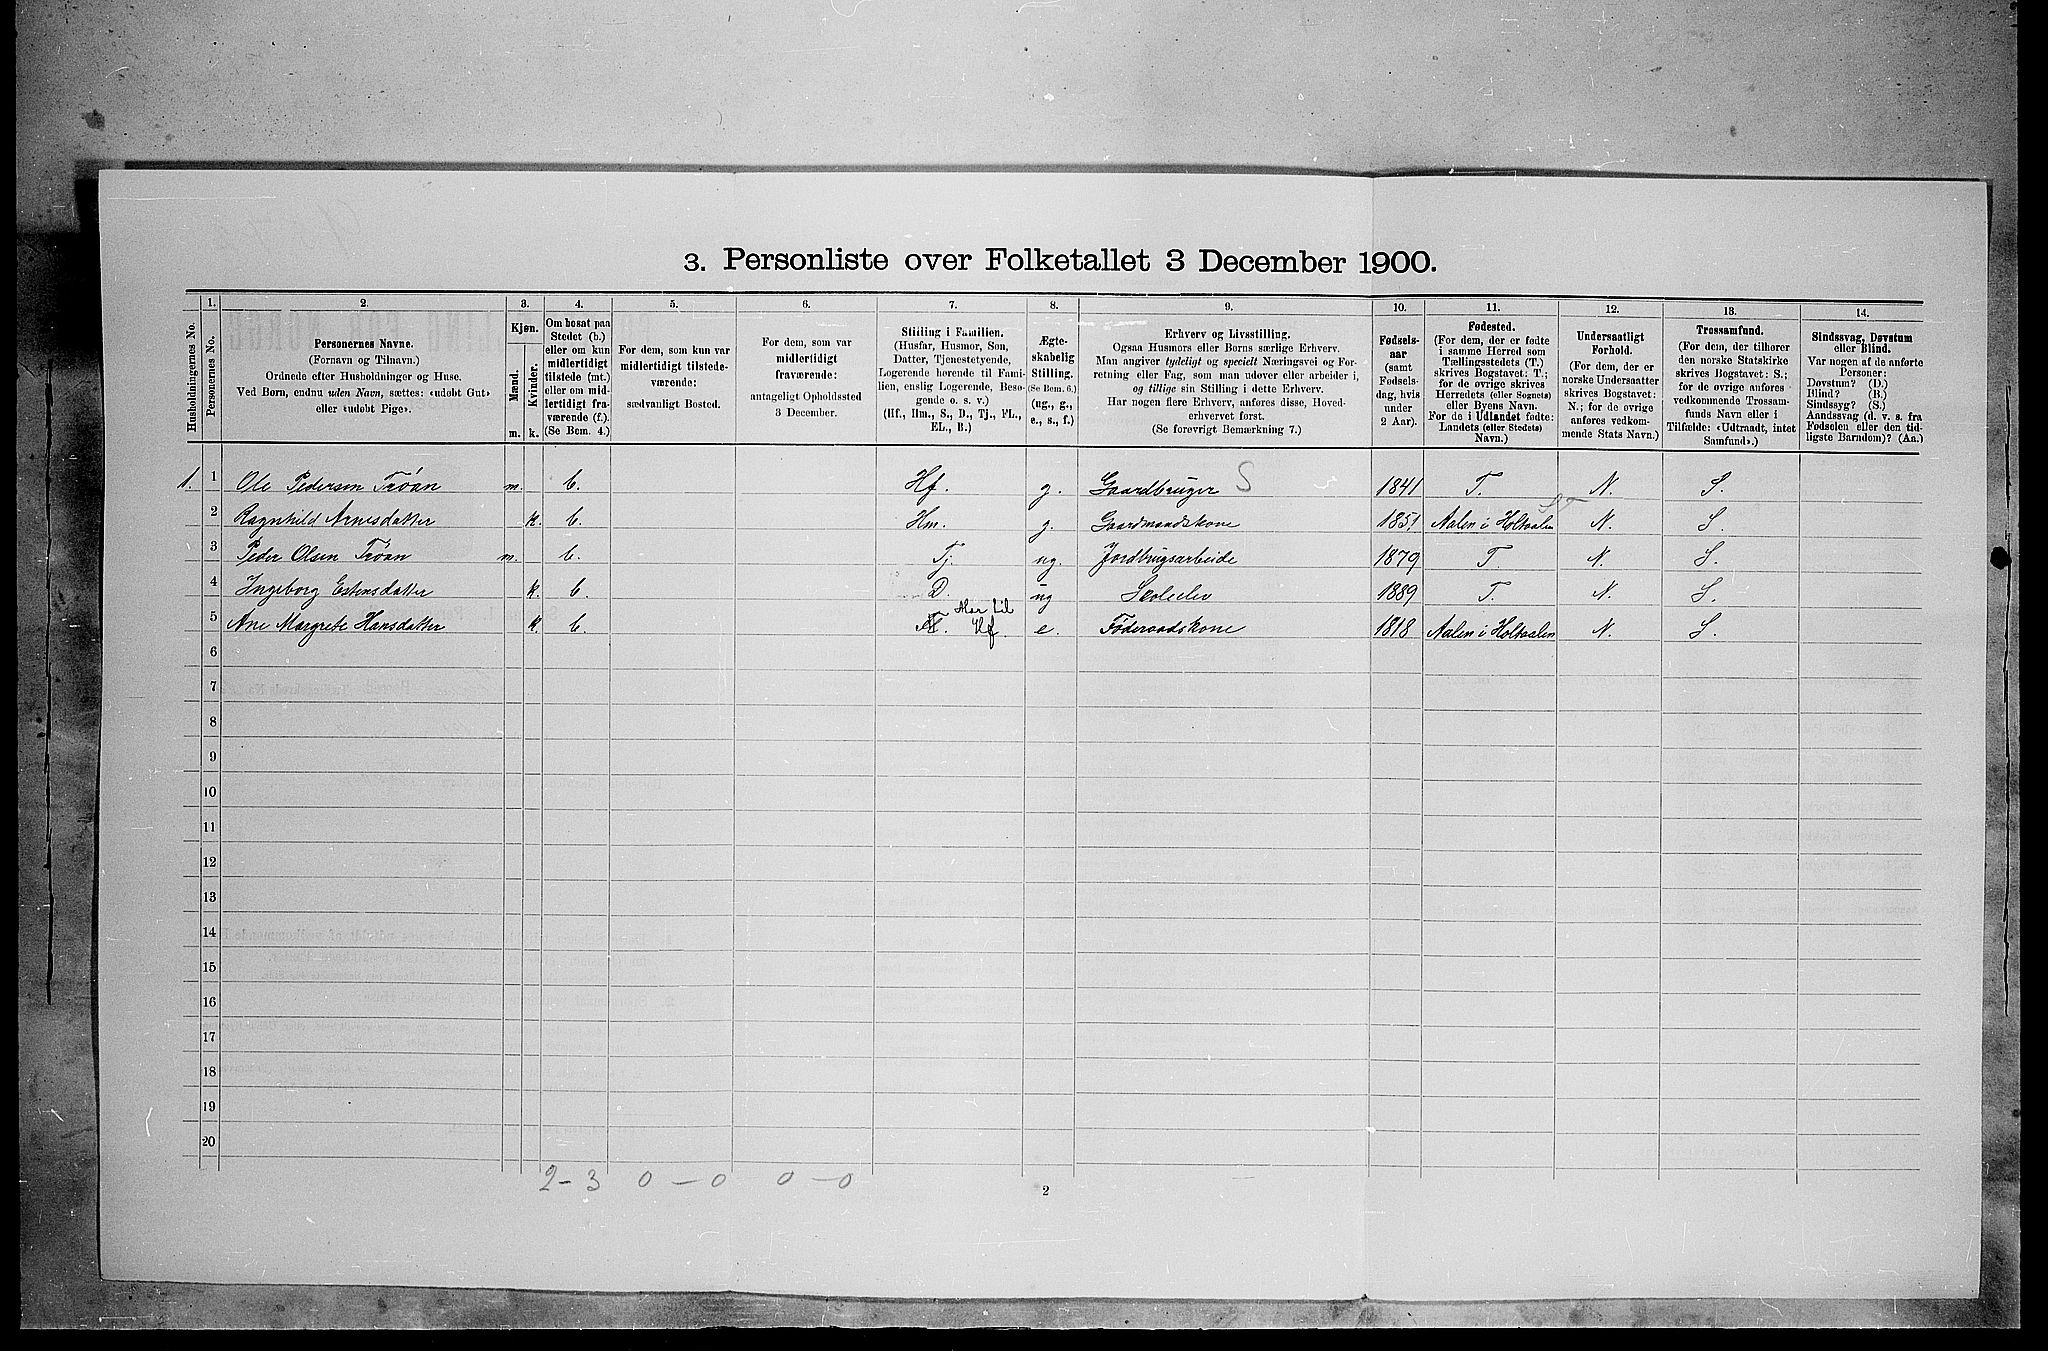 3. Personliste over Folketallet 3 December 1900.
1. 2. 3. 4. 5. 6. 7. 8. 9. 10. 11. 12. 13. 14.
Husholdningernes No.
Personernes No.
Personernes Navne.
(Fornavn og Tilnavn.)
Ordnede efter Husholdninger og Huse.
Ved Børn, endnu uden Navn, sættes: «udøbt Gut»
eller «udøbt Pige».
Kjøn.
Mænd.
Kvinder.
m. k.
Om bosat paa
Stedet (b.)
eller om kun
midlertidigt
tilstede (mt.)
eller om mid-
lertidigt fra-
værende (f.).
(Se Bem. 4.)
For dem, som kun var
midlertidigt tilstede-
værende:
sædvanligt Bosted.
For dem, som var
midlertidigt
fraværende:
antageligt Opholdssted
3 December.
Stilling i Familien.
(Husfar, Husmor, Søn,
Datter, Tjenestetyende,
Logerende hørende til Fami-
lien, enslig Logerende, Besø-
gende o. s. v.)
(Hf., Hm., S., D., Tj., FL.,
EL., B.)
Ægte-
skabelig
Stilling.
(Se Bem. 6.)
(ug., g.,
e., s., f.)
Erhverv og Livsstilling.
Ogsaa Husmors eller Børns særlige Erhverv.
Man angiver tydeligt og specielt Næringsvei og For-
retning eller Fag, som man udøver eller arbeider i,
og tillige sin Stilling i dette Erhverv.
Har nogen flere Erhverv, anføres disse, Hoved-
erhvervet først.
(Se forøvrigt Bemærkning 7.)
Fødsels-
aar
(samt
Fødsels-
dag, hvis
under
2 Aar).
Fødested.
(For dem, der er fødte
i samme Herred som
Tællingsstedets (T.)
skrives Bogstavet: T.;
for de øvrige skrives
Herredets (eller Sognets)
eller Byens Navn.
For de i Udlandet fødte:
Landets (eller Stedets)
Navn.)
Undersaatligt
Forhold.
(For dem, der er
norske Undersaatter
skrives Bogstavet:
N.; for de øvrige
anføres vedkom-
mende Stats Navn.)
Trossamfund.
(For dem, der tilhører
den norske Statskirke
skrives Bogstavet: S.;
for de øvrige anføres
vedkommende Trossam-
funds Navn eller i
Tilfælde: «Udtraadt, intet
Samfund».)
Sindssvag, Døvstum
eller Blind.
Var nogen af de anførte
Personer:
Døvstum? (D.)
Blind? (B.)
Sindssyg? (S.)
Aandssvag (d. v. s. fra
Fødselen eller den tid-
ligste Barndom)? (Aa.)
1. 1 Ole Pedersen Trøan m. b. Hf. g. Gaardbruger S 1841 T. N. S.
2 Ragnhild Arnesdatter k. b. Hm. g. Gaardmandskone 1851 Aalen i Holtaalen N. S.
3 Peder Olsen Trøan m. b. Tj. ug. Jordbrugsarbeide 1879 T. N. S.
4 Ingeborg Estensdatter k. b. D. ug Skoleelev 1889 T. N. S.
5 Ane Margrete Hansdatter k. b. Mor til Hf. e. Føderaadskone 1818 Aalen i Holtaalen N. S.
6
7
8
9
10
11
12
13
14
15
16
17
18
19
20
2-3 0-0 0-0
2